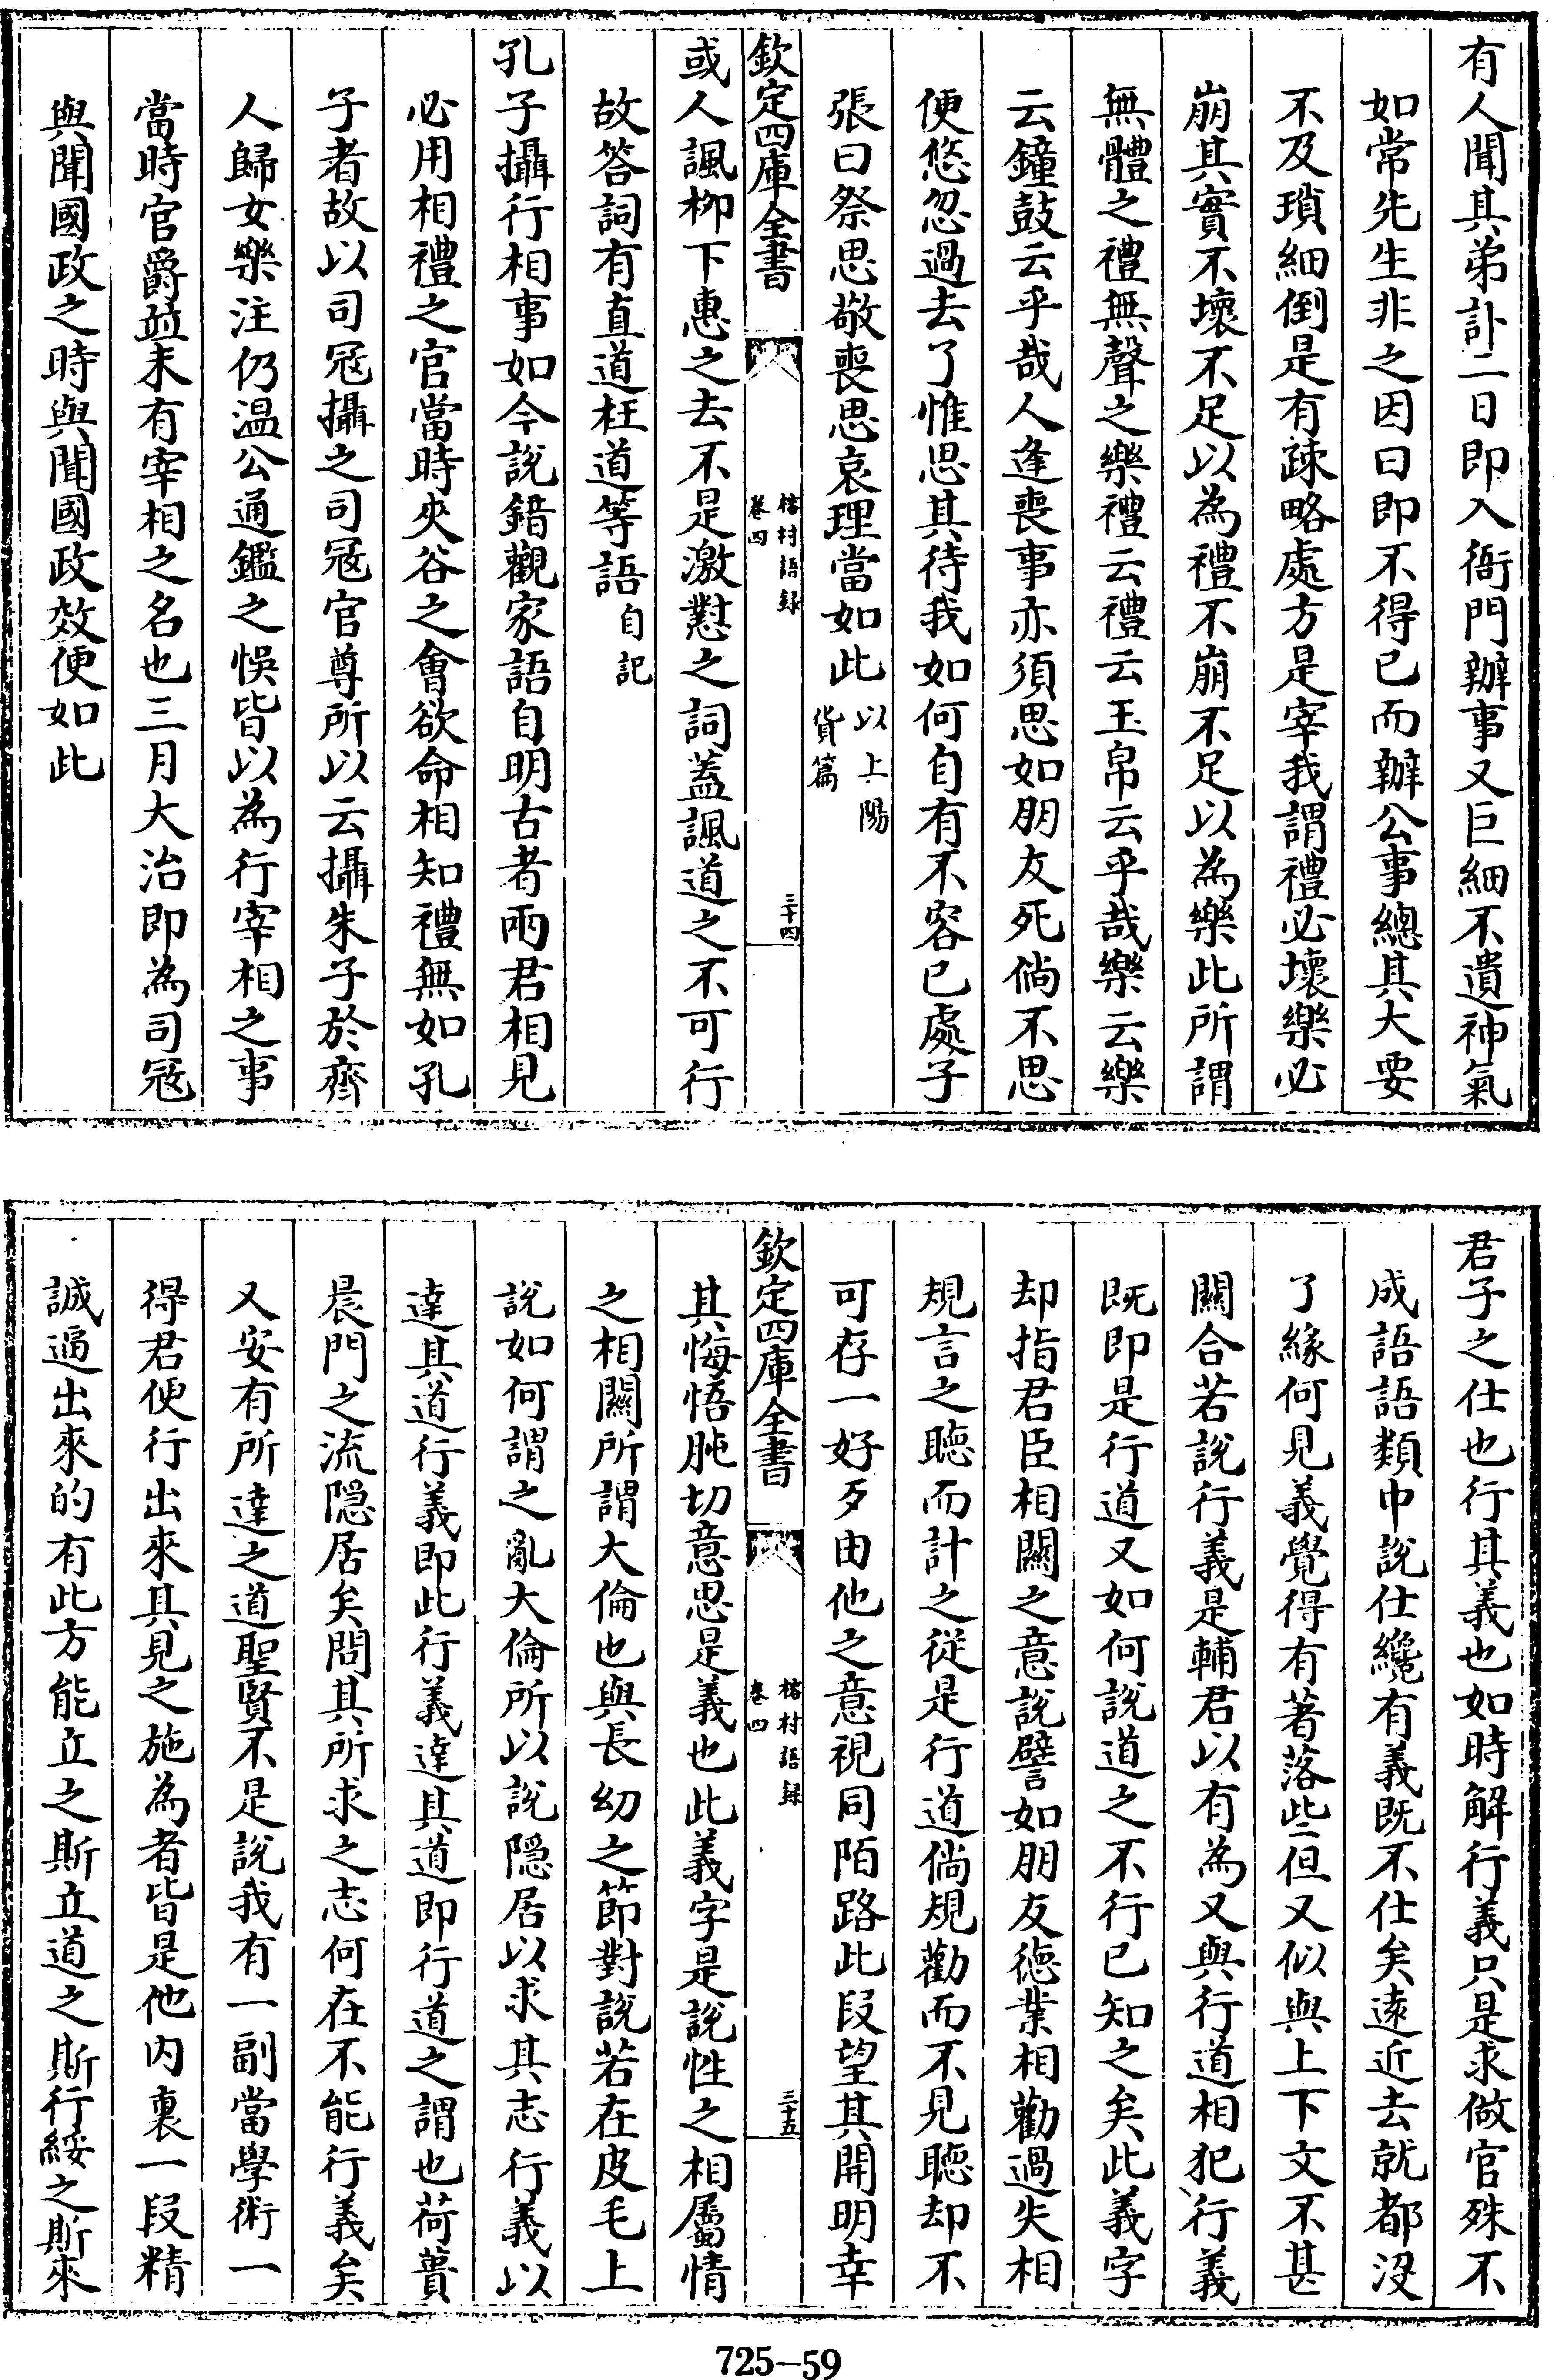 有人聞其弟訃二日即入衙門辦事又巨細不遺神氣
如常先生非之因曰即不得已而辦公事總其大要
不及瑣細倒是有疎略處方是宰我謂禮必壞樂必
崩其實不壞不足以為禮不崩不足以為樂此所謂
無體之禮無聲之樂禮云禮云玉帛云乎哉樂云樂
云鐘鼓云乎哉人逢喪事亦須思如朋友死倘不思
便悠忽過去了惟思其待我如何自有不容已處子
張曰祭思敬喪思哀理當如此以上陽
貨篇
欽定四庫全書
榕村語録
卷四
三十四
或人諷柳下惠之去不是激懟之詞蓋諷道之不可行
故答詞有直道枉道等語自記
孔子攝行相事如今說錯觀家語自明古者兩君相見
必用相禮之官當時夾谷之會欲命相知禮無如孔
子者故以司寇攝之司寇官尊所以云攝朱子於齊
人歸女樂注仍温公通鑑之悞皆以為行宰相之事
當時官爵並未有宰相之名也三月大治即為司寇
與聞國政之時與聞國政效便如此
君子之仕也行其義也如時解行義只是求做官殊不
成語語類中說仕纔有義既不仕矣遠近去就都沒
了緣何見義覺得有著落些但又似與上下文不甚
關合若說行義是輔君以有為又與行道相犯行義
既即是行道又如何說道之不行已知之矣此義字
却指君臣相關之意說譬如朋友德業相勸過失相
規言之聽而計之從是行道倘規勸而不見聽却不
可存一好歹由他之意視同陌路此段望其開明幸
欽定四庫全書
榕村語録
卷四
三十五
其悔悟肫切意思是義也此義字是說性之相屬情
之相關所謂大倫也與長幼之節對說若在皮毛上
說如何謂之亂大倫所以說隱居以求其志行義以
達其道行義即此行義達其道即行道之謂也荷蕢
晨門之流隱居矣問其所求之志何在不能行義矣
又安有所達之道聖賢不是說我有一副當學術一
得君便行出來其見之施為者皆是他內裏一段精
誠逼出來的有此方能立之斯立道之斯行綏之斯來
725-59